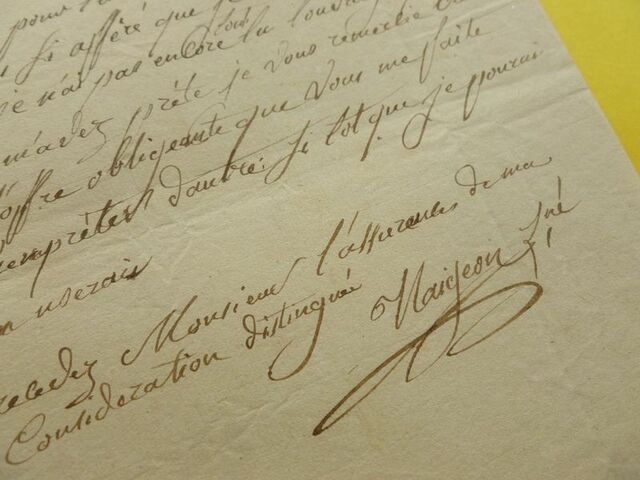 pour l'
si affairé que je
je n'ai pas encore lu l'ouvra
m'avez prêté je vous remercie
offre obligeante que vous me faite
emprêter d'autre. Si tot que je pourai
n userais
recevez Monsieur l'assurences de ma
Consideration distinguée
Naigeon Né